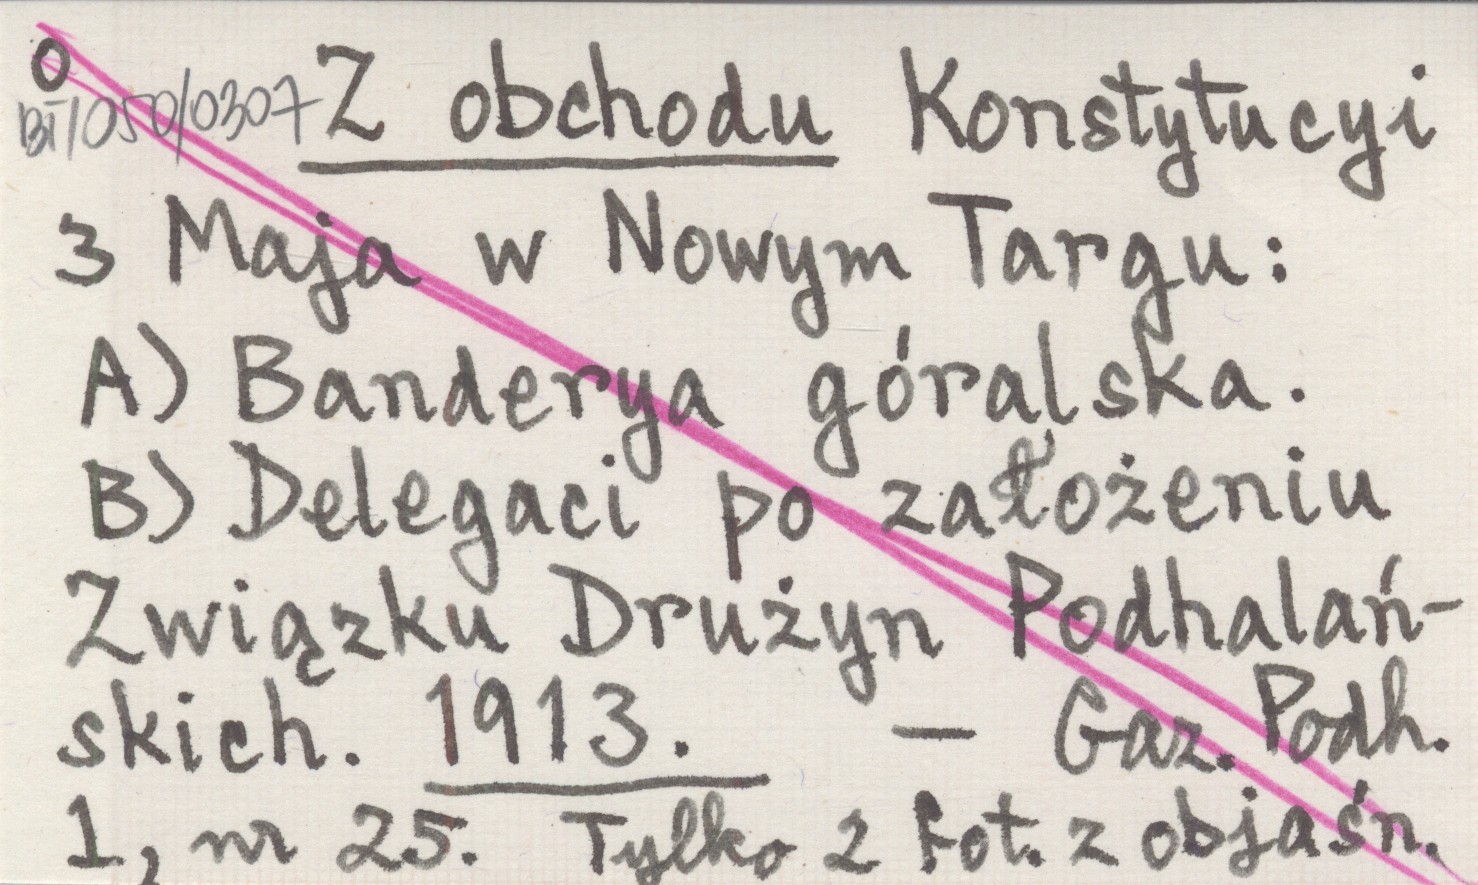 O
BT/050/0307
Z obchodu Konstytucyi
3 Maja w Nowym Targu:
A) Banderya góralska.
B) Delegaci po założeniu
Związku Drużyn Podhalań-
skich. 1913. — Gaz. Podh.
1, nr 25. Tylko 2 fot. z objaśn.